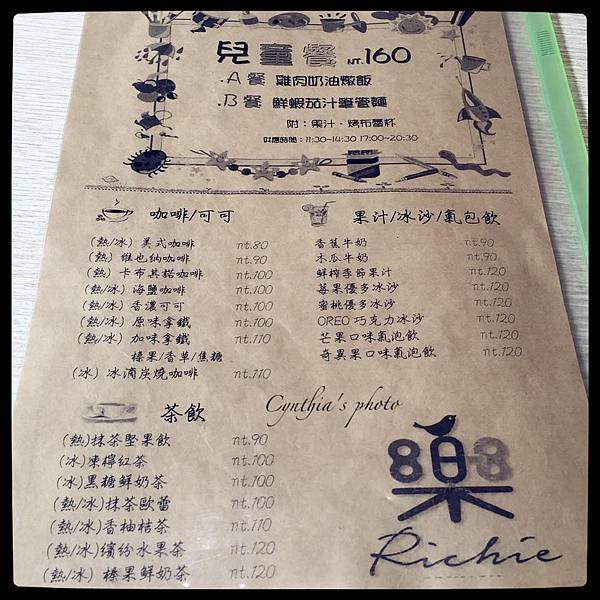 兒童餐 NT.160
.A 餐 雞肉奶油燉飯
.B 餐 鮮蝦茄汁筆管麵
附：果汁．烤布蕾杯
供應時間：11:30~14:30 17:00~20:30
咖啡/可可
(熱/冰) 美式咖啡 nt.80
(熱) 維也納咖啡 nt.90
(熱) 卡布其諾咖啡 nt.100
(熱/冰) 海鹽咖啡 nt.100
(熱/冰) 香濃可可 nt.100
(熱/冰) 原味拿鐵 nt.100
(熱/冰) 加味拿鐵 nt.110
榛果/香草/焦糖
(冰) 冰滴炭燒咖啡 nt.110
果汁/冰沙/氣泡飲
香蕉牛奶 nt.90
木瓜牛奶 nt.90
鮮榨季節果汁 nt.120
莓果優多冰沙 nt.120
蜜桃優多冰沙 nt.120
OREO 巧克力冰沙 nt.120
芒果口味氣泡飲 nt.120
奇異果口味氣泡飲 nt.120
茶飲
(熱)抹茶堅果飲 nt.90
(冰)凍檸紅茶 nt.100
(冰)黑糖鮮奶茶 nt.100
(熱/冰)抹茶歐蕾 nt.100
(熱/冰)香柚桔茶 nt.110
(熱/冰)繽紛水果茶 nt.120
(熱/冰) 榛果鮮奶茶 nt.120
Cynthia's photo
樂
Richie